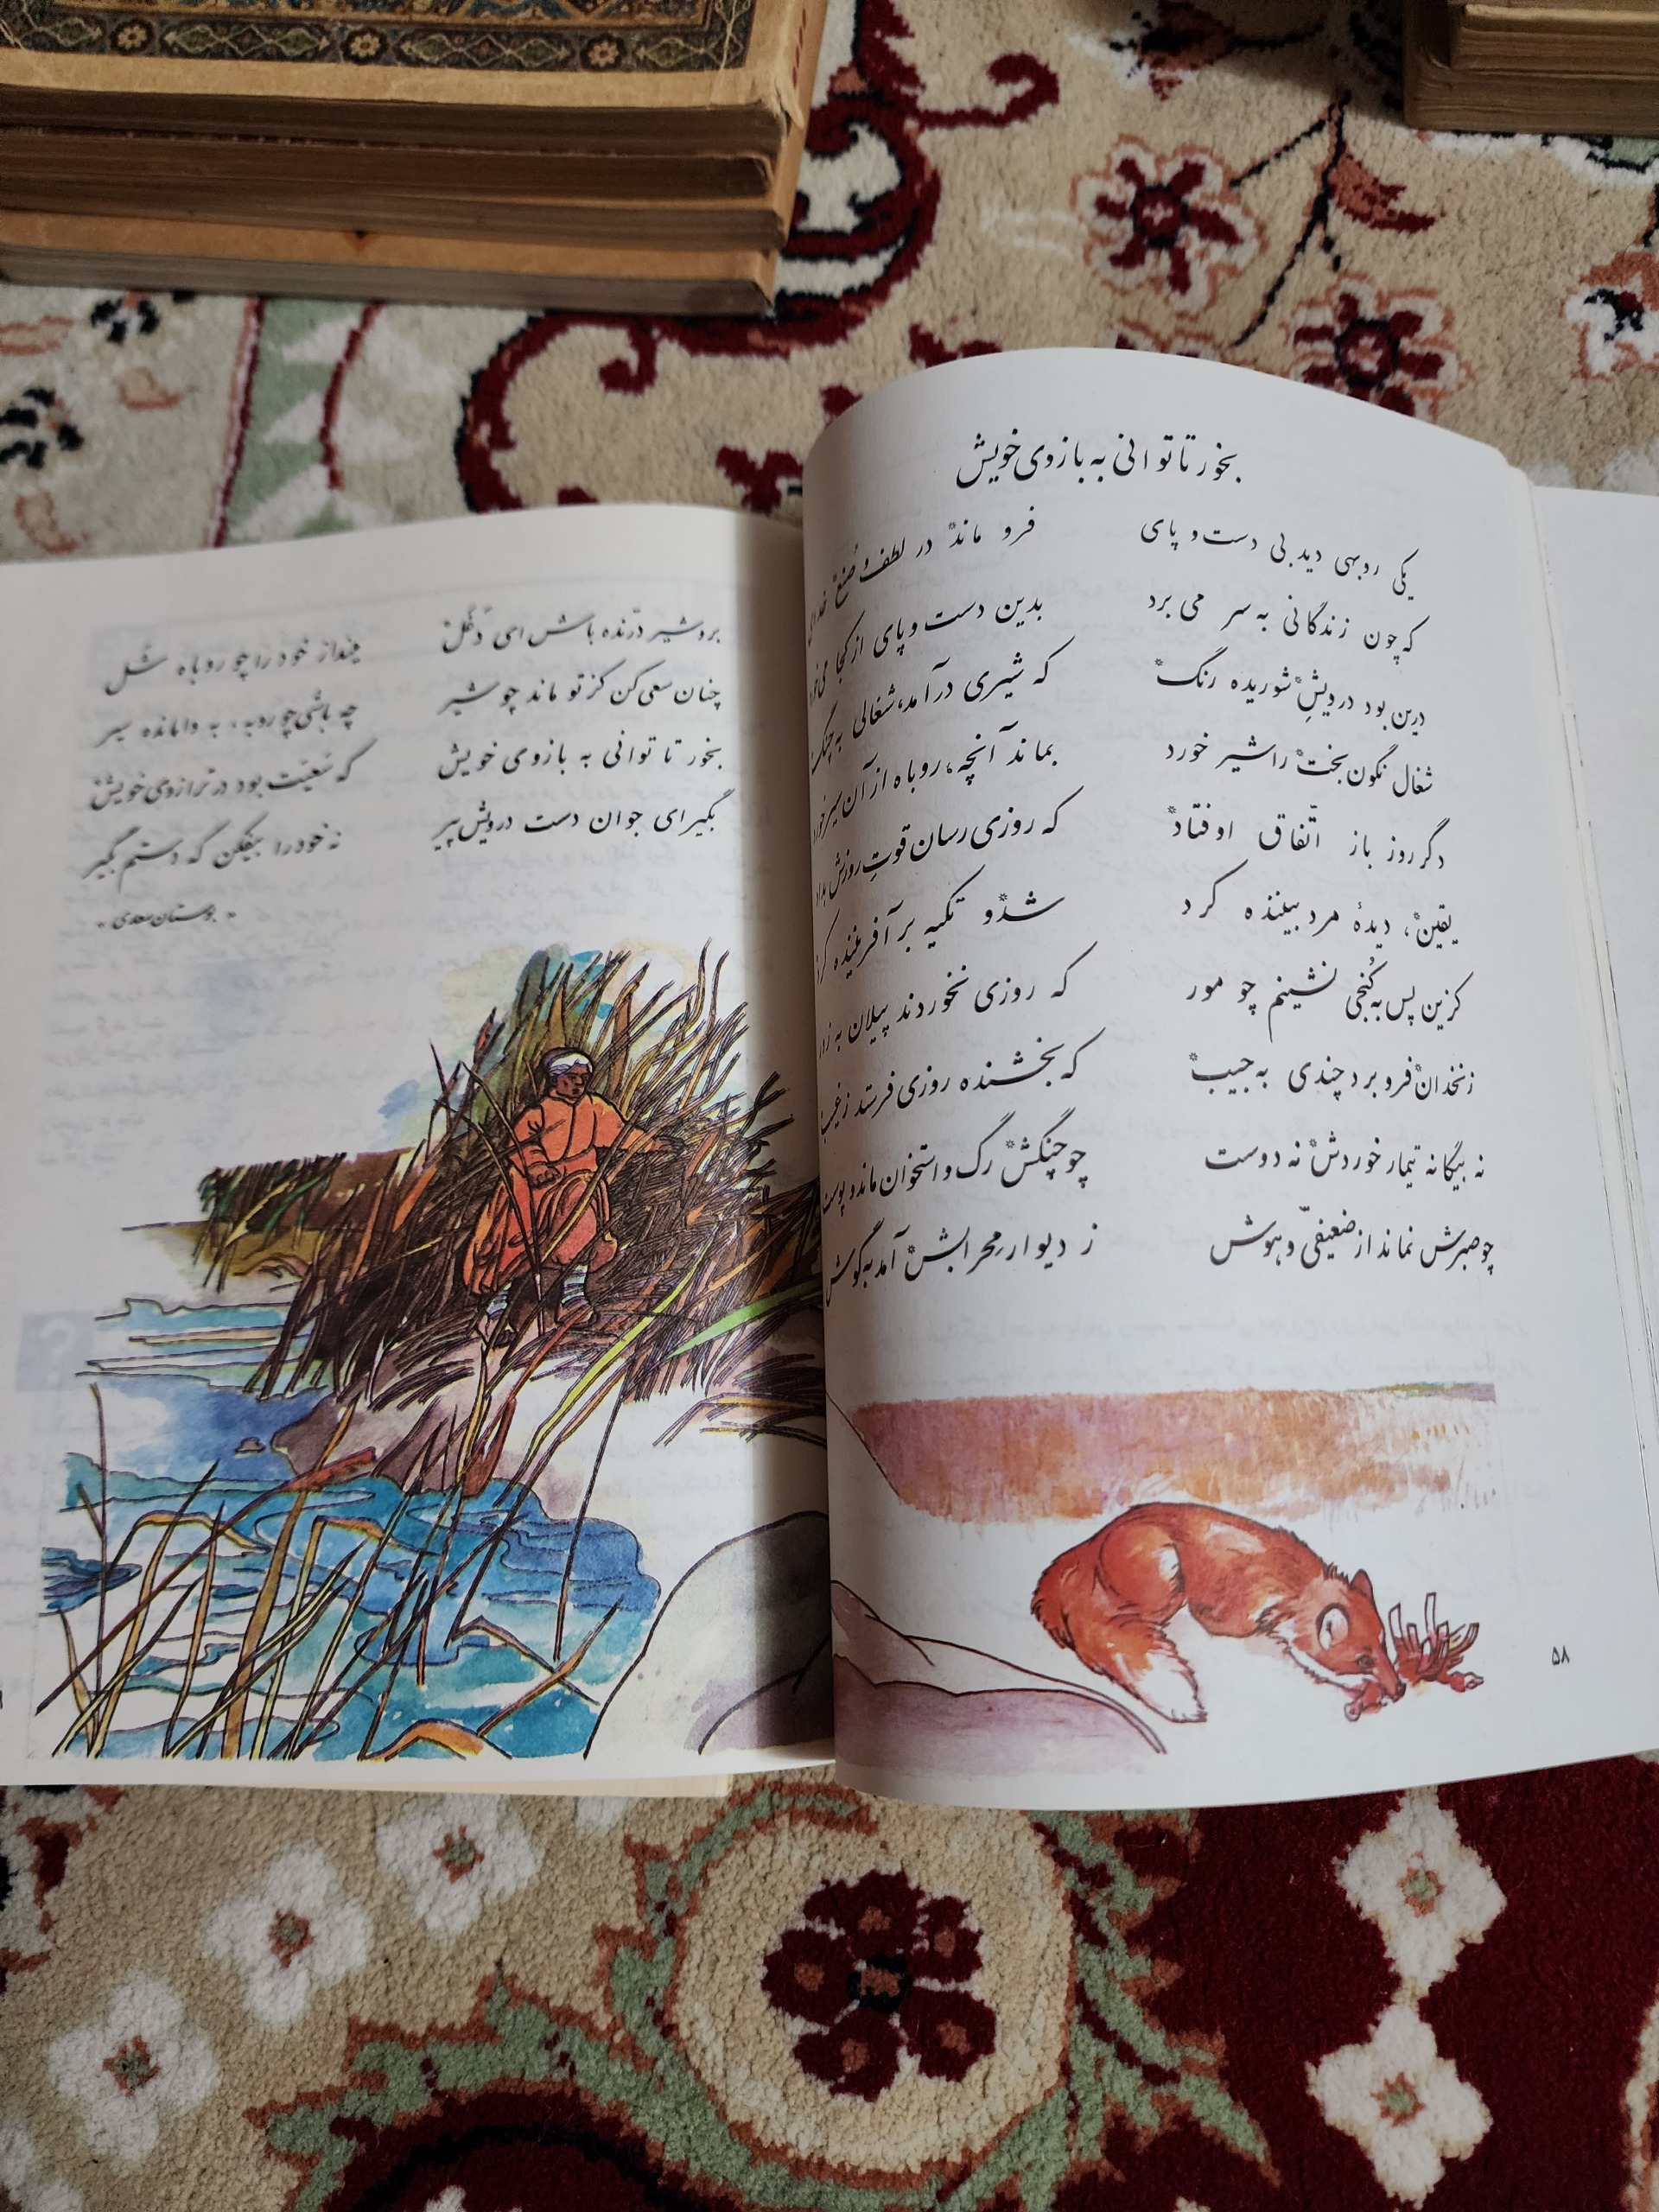 بخور تا توانی به بازوی خویش
یکی روبهی دید بی دست و پای فرو ماند* در لطف و صُنعِ* خدای
که چون زندگانی به سر می برد بدین دست و پای از کجا می خورد
درین بود درویشِ* شوریده رنگ* که شیری درآمد، شغالی به چنگ
شغال نگون بخت* را شیر خورد بماند آنچه، روباه از آن سیر خورد
دگر روز باز اتّفاق اوفتاد* که روزی رسان قوتِ روزش بداد
یقین*، دیدهٔ مرد بیننده کرد شد* و تکیه بر آفریننده کرد
کزین پس به کُنجی نشینم چو مور که روزی نخوردند پیلان به زور
زنخدان* فرو برد چندی به جیب* که بخشنده روزی فرستد ز غیب
نه بیگانه تیمار خوردش* نه دوست چو چنگش* رگ و استخوان ماند و پوست
چو صبرش نماند از ضعیفیّ و هوش ز دیوارِ محرابش* آمد به گوش
۵۸
برو شیر درّنده باش ای دَغَل* مینداز خود را چو روباه شَل
چنان سعی کن کز تو ماند چو شیر چه باشی چو روبه، به وامانده سیر
بخور تا توانی به بازوی خویش که سَعیَت بود در ترازوی خویش*
بگیر ای جوان دست درویش پیر نه خود را بیفکن که دستم بگیر
« بوستان سعدی »